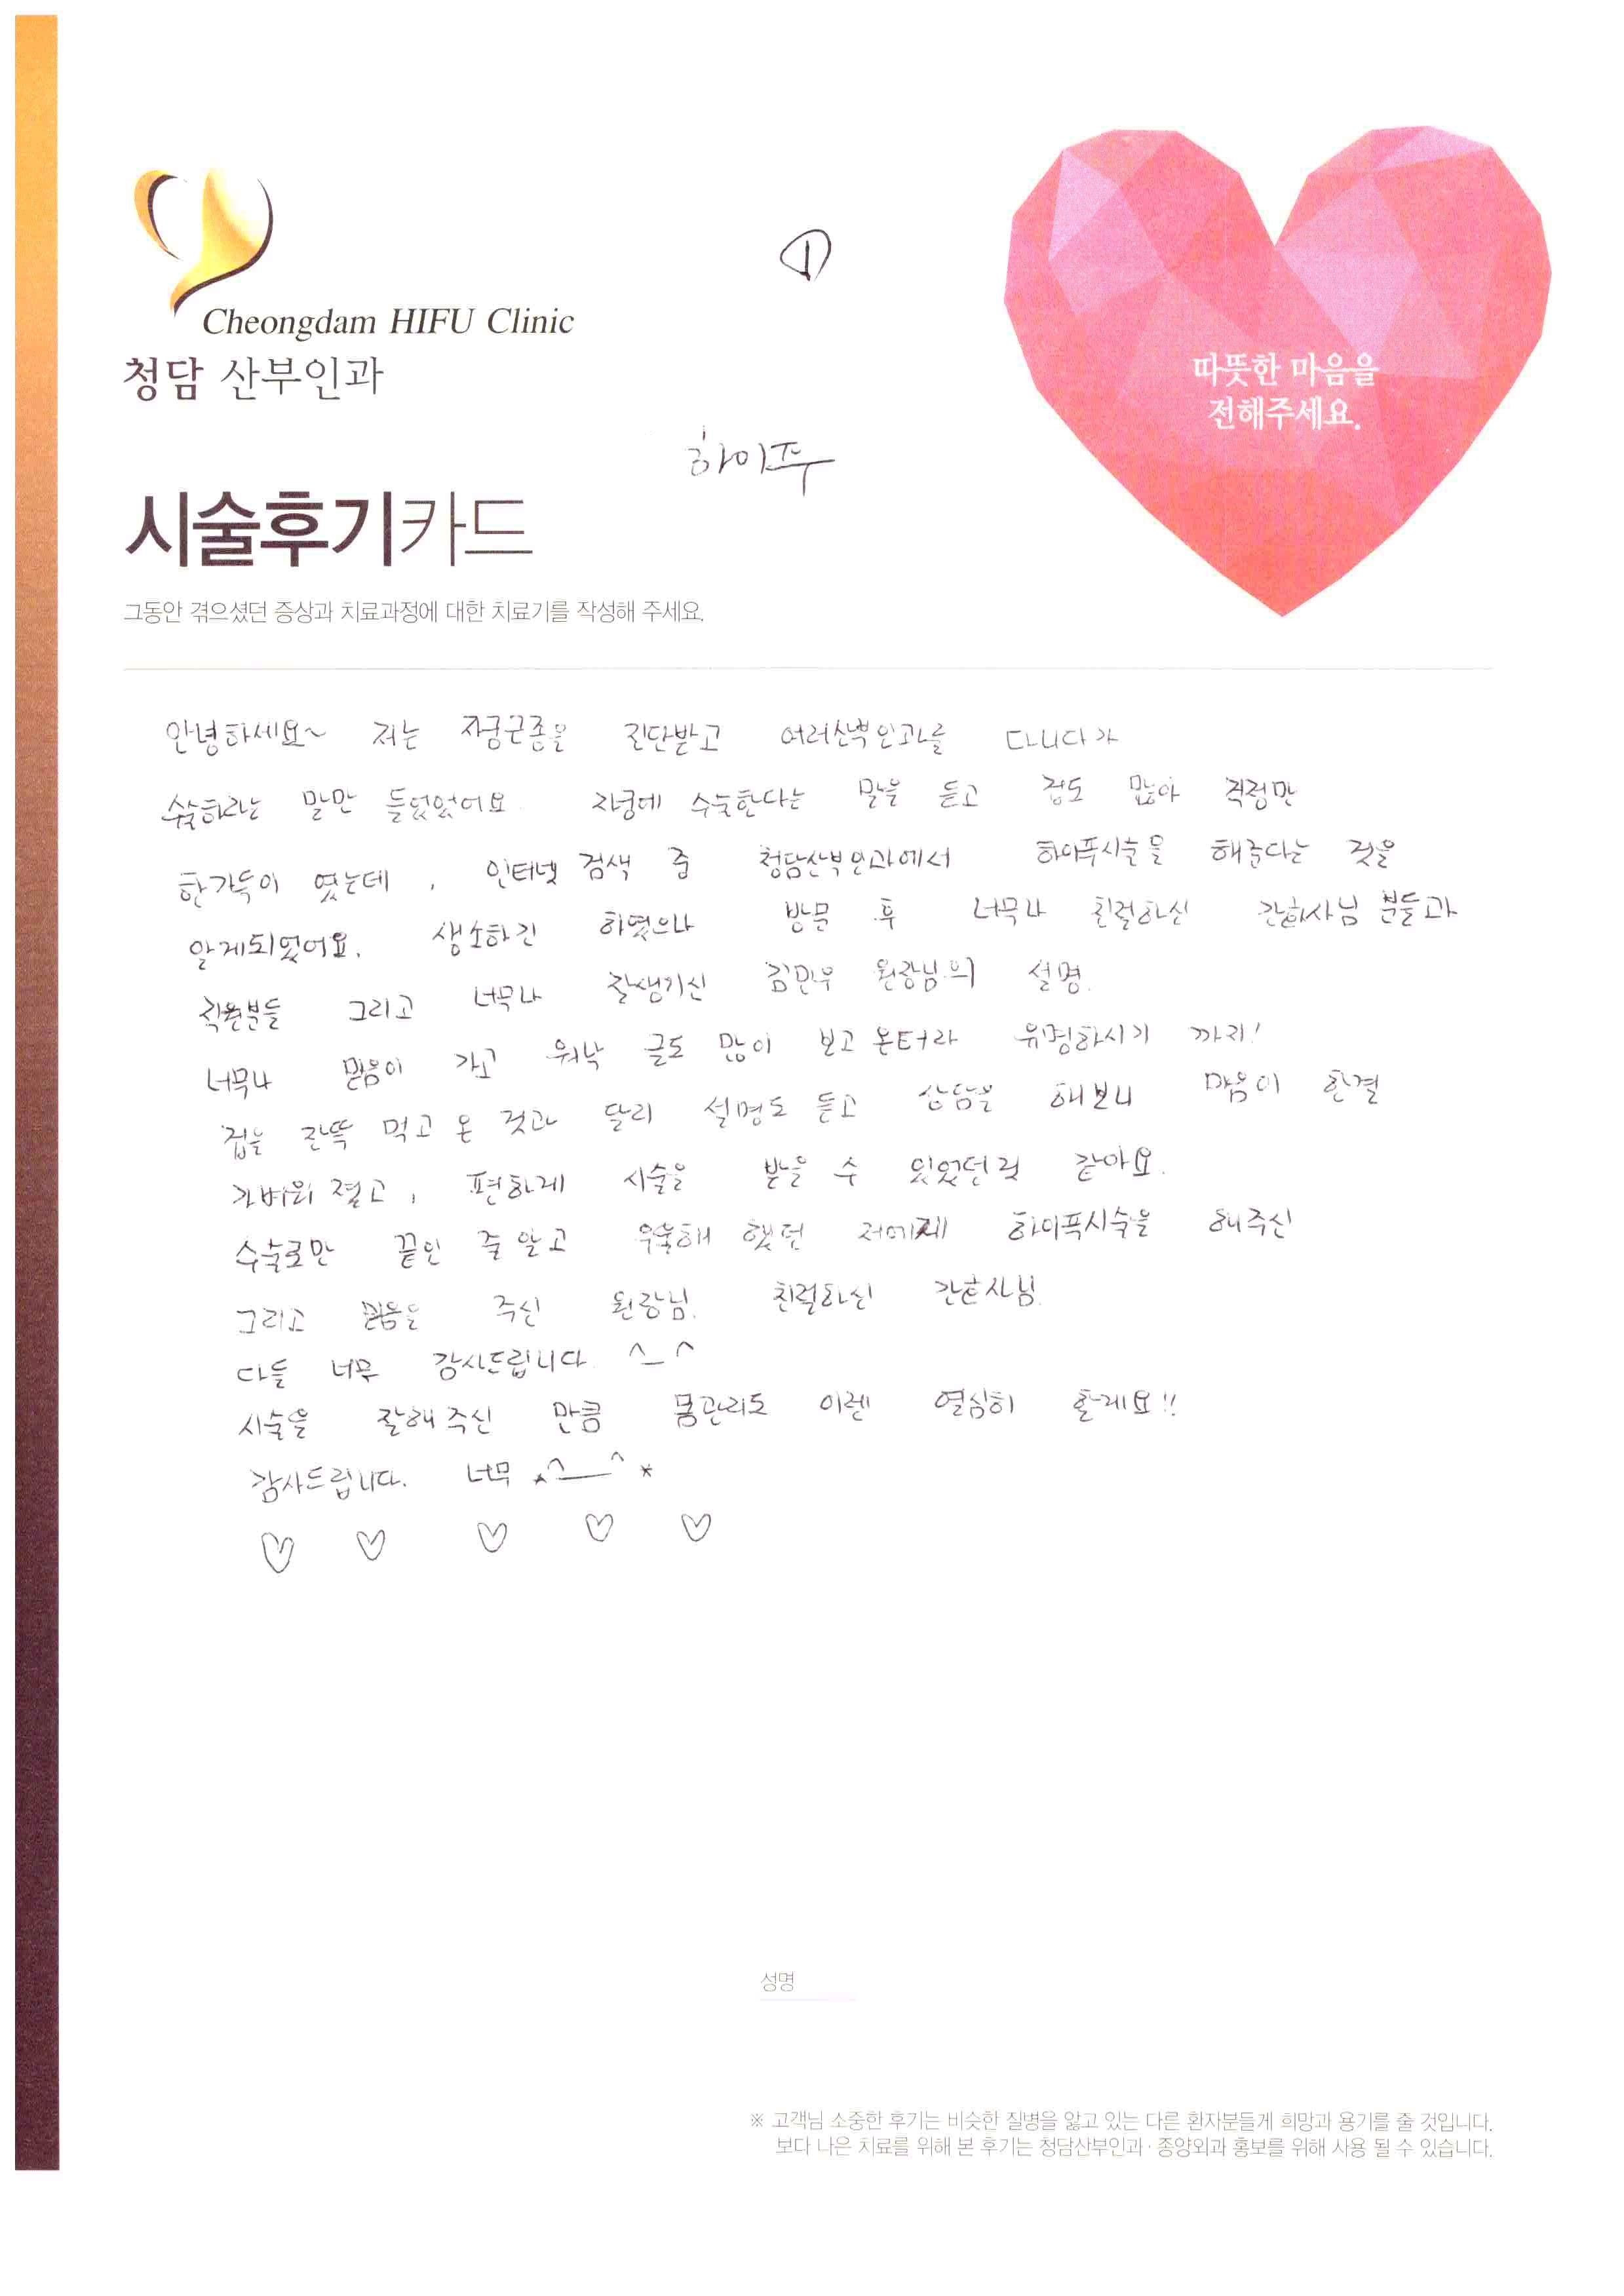 ①
Cheongdam HIFU Clinic
청담 산부인과
따뜻한 마음을
전해주세요.
하이푸
시술후기카드
그동안 겪으셨던 증상과 치료과정에 대한 치료기를 작성해 주세요.
안녕하세요~ 저는 자궁근종을 진단받고 여러산부인과를 다니다가
수술하라는 말만 들었었어요. 자궁에 수술한다는 말을 듣고 겁도 많아 걱정만
한가득이 였는데, 인터넷 검색 중 청담산부인과에서 하이푸시술을 해준다는 것을
알게되었어요. 생소하긴 하였으나 방문 후 너무나 친절하신 간호사님 분들과
직원분들 그리고 너무나 잘생기신 김민우 원장님의 설명.
너무나 믿음이 가고 워낙 글도 많이 보고 온터라 유명하시기 까지!
겁을 잔뜩 먹고 온 것과 달리 설명도 듣고 상담을 해보니 마음이 한결
가벼워 졌고, 편하게 시술을 받을 수 있었던것 같아요.
수술로만 끝인 줄 알고 우울해 했던 저에게 하이푸시술을 해주신
그리고 믿음을 주신 원장님. 친절하신 간호사님.
다들 너무 감사드립니다. ^_^
시술을 잘해주신 만큼 몸관리도 이젠 열심히 할게요!!
감사드립니다. 너무 *^__^*
♡ ♡ ♡ ♡ ♡
성명
※ 고객님 소중한 후기는 비슷한 질병을 앓고 있는 다른 환자분들게 희망과 용기를 줄 것입니다.
보다 나은 치료를 위해 본 후기는 청담산부인과·종양외과 홍보를 위해 사용 될 수 있습니다.